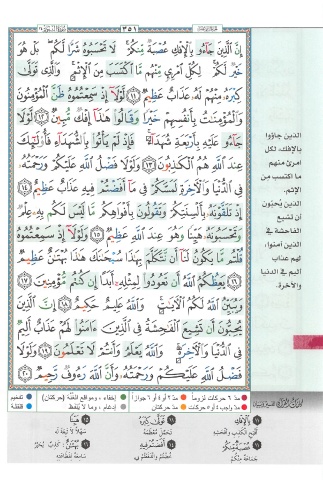 ٣٥١
إِنَّ الَّذِينَ جَاءُو بِالْإِفْكِ عُصْبَةٌ مِنْكُمْ لَا تَحْسَبُوهُ شَرًّا لَكُمْ بَلْ هُوَ
خَيْرٌ لَكُمْ لِكُلِّ امْرِئٍ مِنْهُمْ مَا اكْتَسَبَ مِنَ الْإِثْمِ وَالَّذِي تَوَلَّى
كِبْرَهُ مِنْهُمْ لَهُ عَذَابٌ عَظِيمٌ ١١ لَوْلَا إِذْ سَمِعْتُمُوهُ ظَنَّ الْمُؤْمِنُونَ
وَالْمُؤْمِنَاتُ بِأَنْفُسِهِمْ خَيْرًا وَقَالُوا هَذَا إِفْكٌ مُبِينٌ ١٢ لَوْلَا
جَاءُو عَلَيْهِ بِأَرْبَعَةِ شُهَدَاءَ فَإِذْ لَمْ يَأْتُوا بِالشُّهَدَاءِ فَأُولَئِكَ
عِنْدَ اللَّهِ هُمُ الْكَاذِبُونَ ١٣ وَلَوْلَا فَضْلُ اللَّهِ عَلَيْكُمْ وَرَحْمَتُهُ
فِي الدُّنْيَا وَالْآخِرَةِ لَمَسَّكُمْ فِي مَا أَفَضْتُمْ فِيهِ عَذَابٌ عَظِيمٌ ١٤
إِذْ تَلَقَّوْنَهُ بِأَلْسِنَتِكُمْ وَتَقُولُونَ بِأَفْوَاهِكُمْ مَا لَيْسَ لَكُمْ بِهِ عِلْمٌ
وَتَحْسَبُونَهُ هَيِّنًا وَهُوَ عِنْدَ اللَّهِ عَظِيمٌ ١٥ وَلَوْلَا إِذْ سَمِعْتُمُوهُ
قُلْتُمْ مَا يَكُونُ لَنَا أَنْ نَتَكَلَّمَ بِهَذَا سُبْحَانَكَ هَذَا بُهْتَانٌ عَظِيمٌ
١٦ يَعِظُكُمُ اللَّهُ أَنْ تَعُودُوا لِمِثْلِهِ أَبَدًا إِنْ كُنْتُمْ مُؤْمِنِينَ ١٧
وَيُبَيِّنُ اللَّهُ لَكُمُ الْآيَاتِ وَاللَّهُ عَلِيمٌ حَكِيمٌ ١٨ إِنَّ الَّذِينَ
يُحِبُّونَ أَنْ تَشِيعَ الْفَاحِشَةُ فِي الَّذِينَ آمَنُوا لَهُمْ عَذَابٌ أَلِيمٌ
فِي الدُّنْيَا وَالْآخِرَةِ وَاللَّهُ يَعْلَمُ وَأَنْتُمْ لَا تَعْلَمُونَ ١٩ وَلَوْلَا
فَضْلُ اللَّهِ عَلَيْكُمْ وَرَحْمَتُهُ وَأَنَّ اللَّهَ رَءُوفٌ رَحِيمٌ ٢٠
الذين جاؤوا
بالإفك، لكل
امرئ منهم
ما اكتسب من
الإثم.
الذين يُحبّون
أن تشيع
الفاحشة في
الذين آمنوا
لهم عذاب
أليم في الدنيا
والآخرة.
مدّ ٦ حركات لزوماً
مدّ ٢ أو ٤ أو ٦ جوازاً
إخفاء، ومواقع الغُنَّة (حركتان)
تفخيم
مدّ واجب ٤ أو ٥ حركات
مدّ حركتان
إدغام، وما لا يُلفَظ
قلقلة